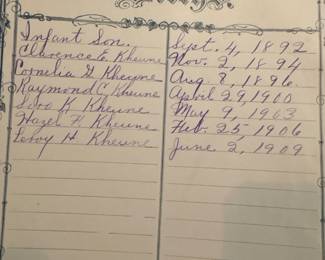 Infant Son. Sept. 4, 1892
Clarence E. Kheune Nov. 2, 1894
Cornelia G Kheyne Aug 8, 1896.
Raymond C. Kheune April 29, 1900
K Kheune May 9, 1903
Hazel R Kheune Feb. 25, 1906
Leroy H Kheune June 2, 1909